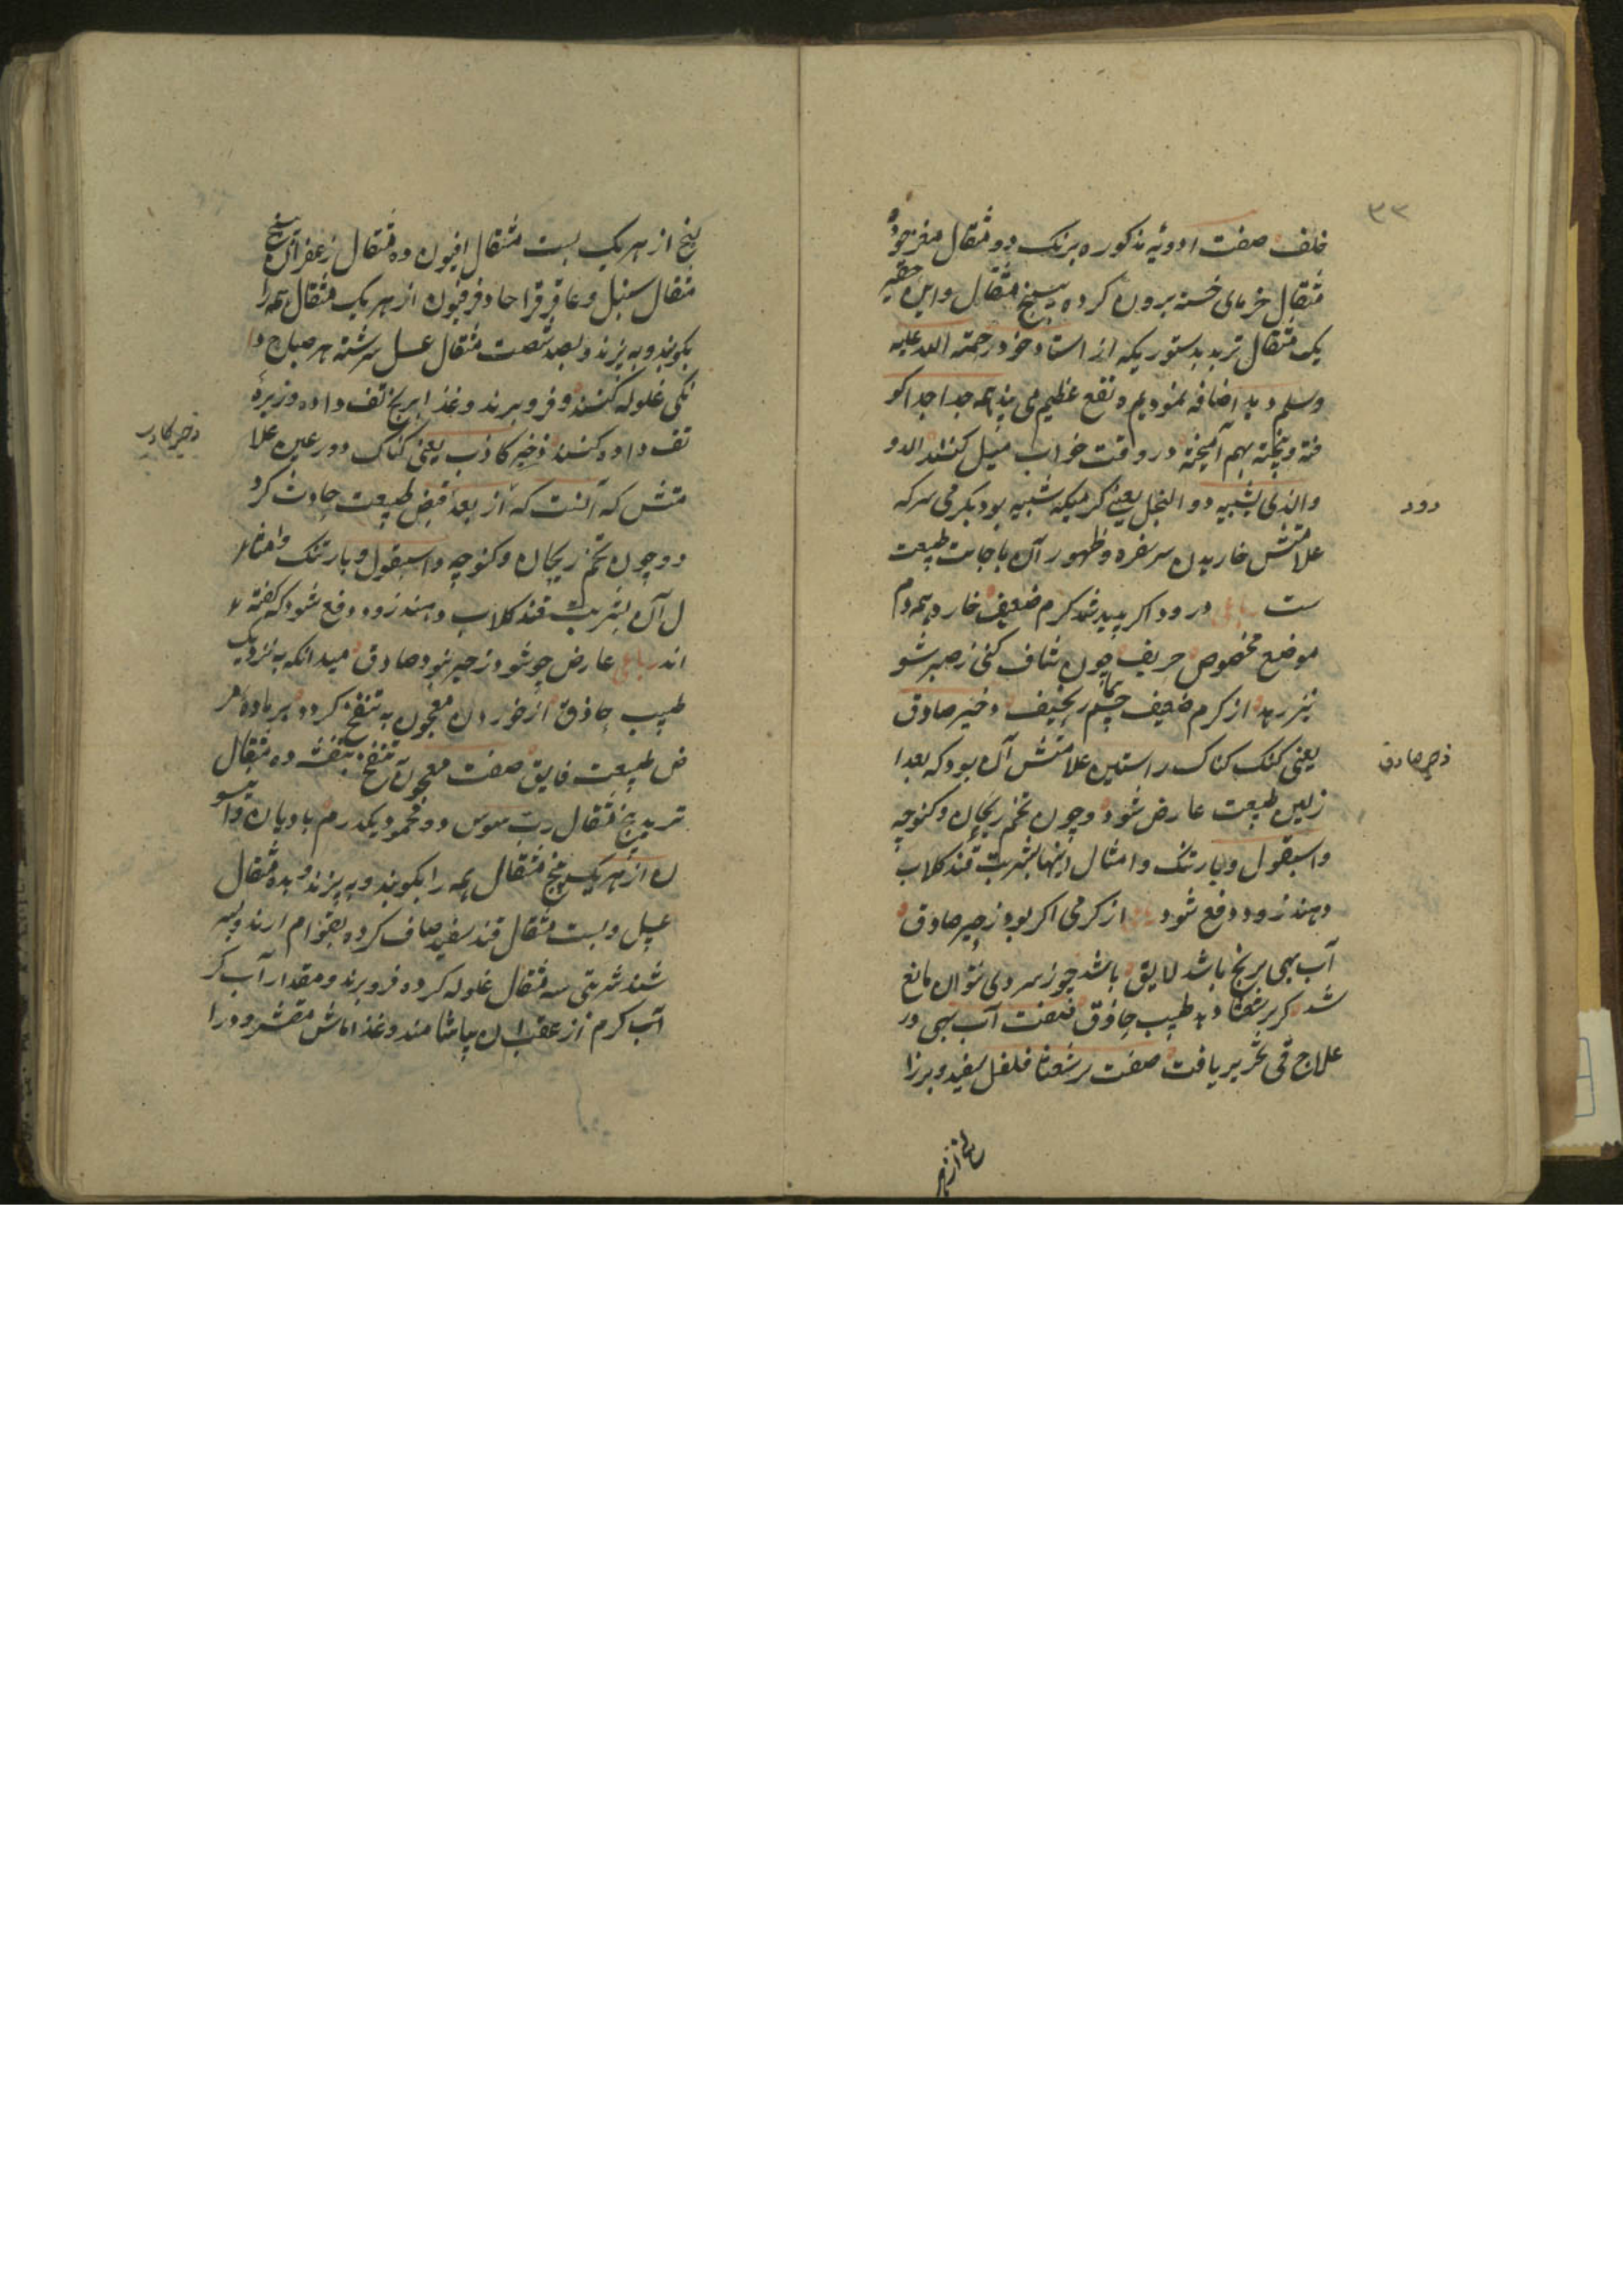 ۳۳
خلف صفت ادویه مذکوره برنک دو مثقال مغز جوز ده
مثقال خرمای خسته برون کرده پنج مثقال و این حقیر
یک مثقال تربد بدستوریکه از استاد خود رحمته الله علیه
وسلم دید اضافه نمودیم و نفع عظیم می بیند همه جدا جدا کو
فته و بیخته بهم آمیخته در وقت خواب میل کنند الدو
والذی یشبیه دود النخل یعنی کرمیکه شبیه بود بکرمی سرکه
دود
علامتش خاریدن سر سفره و ظهور آن با جابت طبیعت
ست رباعی در رود اکر پدید شد کرم ضعیف خارد همه دم
موضع مخصوص حریف چون شاف کنی ز صبر شو
نیز رهد از کرم ضعیف چشم نحیف زحیر صادق
یعنی کنک کناک راستین علامتش آن بود که بعد ا
زحیر صادق
زلین طبیعت عارض شود و چون تخم ریحان و کنوچه
و اسبغول و بارتنک و امثال اینها بشربت قند کلاب
دهند زود دفع شود از کرمی اکر بود زحیر صادق
آب بهی برنج باشد لایق باشد چو ز سردی نتوان مانع
شد کر برشعثا دهد طبیب حاذق صفت آب بهی در
علاج قی تحریر یافت صفت برشعثا فلفل سفید و برزا
لبنج از هر
لبنج از هر یک بست مثقال افیون ده مثقال زعفران پنج
مثقال سنبل و عاقرقرحا و فرفیون از هر یک مثقال همه را
بکوبند و به پیزند و بصد شصت مثقال عسل سرشته هر صباح دا
نکی غلوله کنند و فرو برند و غذا برنج تف داده و زیره
تف داده کنند زحیر کاذب یعنی کناک دورغین علا
زحیر کاذب
متش که آنست که از بعد قبض طبیعت حادث کرد
دو چون تخم ریحان و کنوچه و اسبغول و بارتنک و امثا
ل آن بشربت قند کلاب دهند زود دفع شود که کفته
اند رباعی عارض چو شود زحیر نبود صادق میدانکه به نزدیک
طبیب حاذق از خوردن معجون بنفشج کردد بر ماده
ض طبیعت فایق صفت معجون بنفشج بنفشه ده مثقال
تربد پنج مثقال رب سوس دو محموده یکدرم بادیان و انیسو
ن از هر یک پنج مثقال همه را بکوبند و به پیزند و بده مثقال
عسل و بست مثقال قند سفید صاف کرده بقوام ارند و بسر
شند شربتی سه مثقال غلوله کرده فرو برند و مقدار آب کر
آب کرم از عقب ان بیاشامند و غذا ماش مقشر و درا